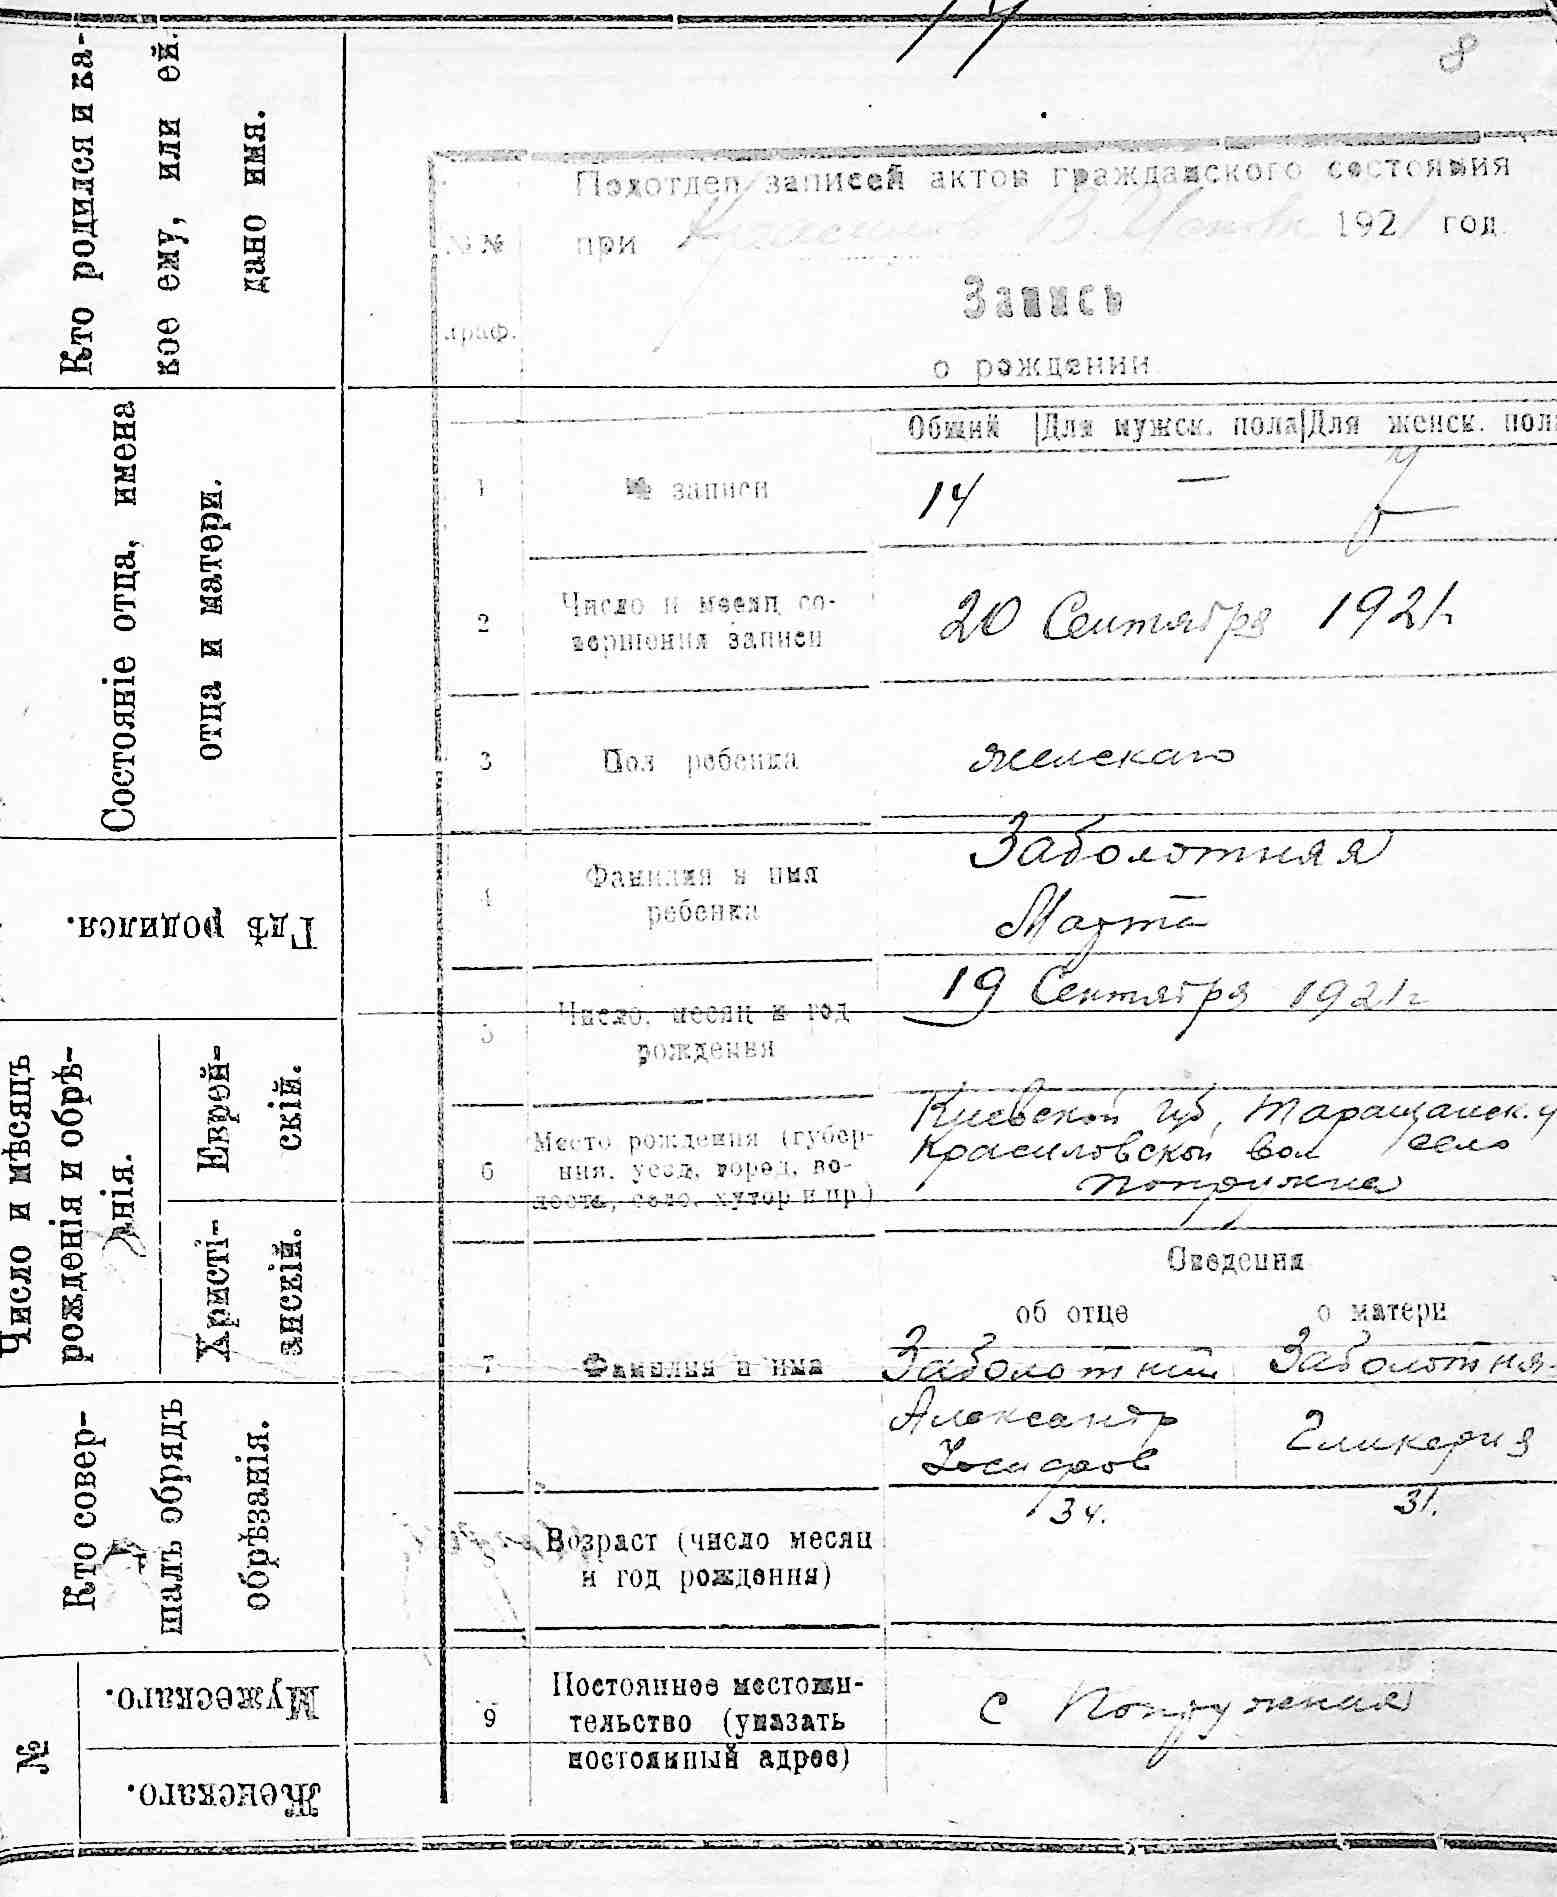 14
8
Кто родился и ка-
кое ему, или ей
дано имя.
Состояніе отца, имена
отца и матери.
Гдѣ родился.
Число и мѣсяцъ
рожденія и обрѣ-
занія.
Еврей-
скій.
Христі-
анскій.
Кто совер-
шалъ обрядъ
обрѣзанія.
№
Мужескаго.
Женскаго.
Подотдел записей актов гражданского состояния
при 1921 год.
№№
граф.
Запись
о рождении
Общий | Для мужск. пола | Для женск. пола
1 № записи 14 —
2 Число и месяц со-
вершения записи
20 Сентября 1921г
3 Пол ребенка женскаго
4 Фамилия и имя
ребенка
Заболотная
Марта
5 Число, месяц и год
рождения
19 Сентября 1921г
6 Место рождения (губер-
ния, уезд, город, во-
лость, село, хутор и пр)
Киевской губ, Таращанск. у
Красиловской вол село
Попружна
Сведения
об отце о матери
7 Фамилия и имя Заболотний Заболотная
Александр
Иосифов
Гликерия
Возраст (число месяц
и год рождения)
34. 31.
9 Постоянное местожи-
тельство (указать
постоянный адрес)
с Попружная